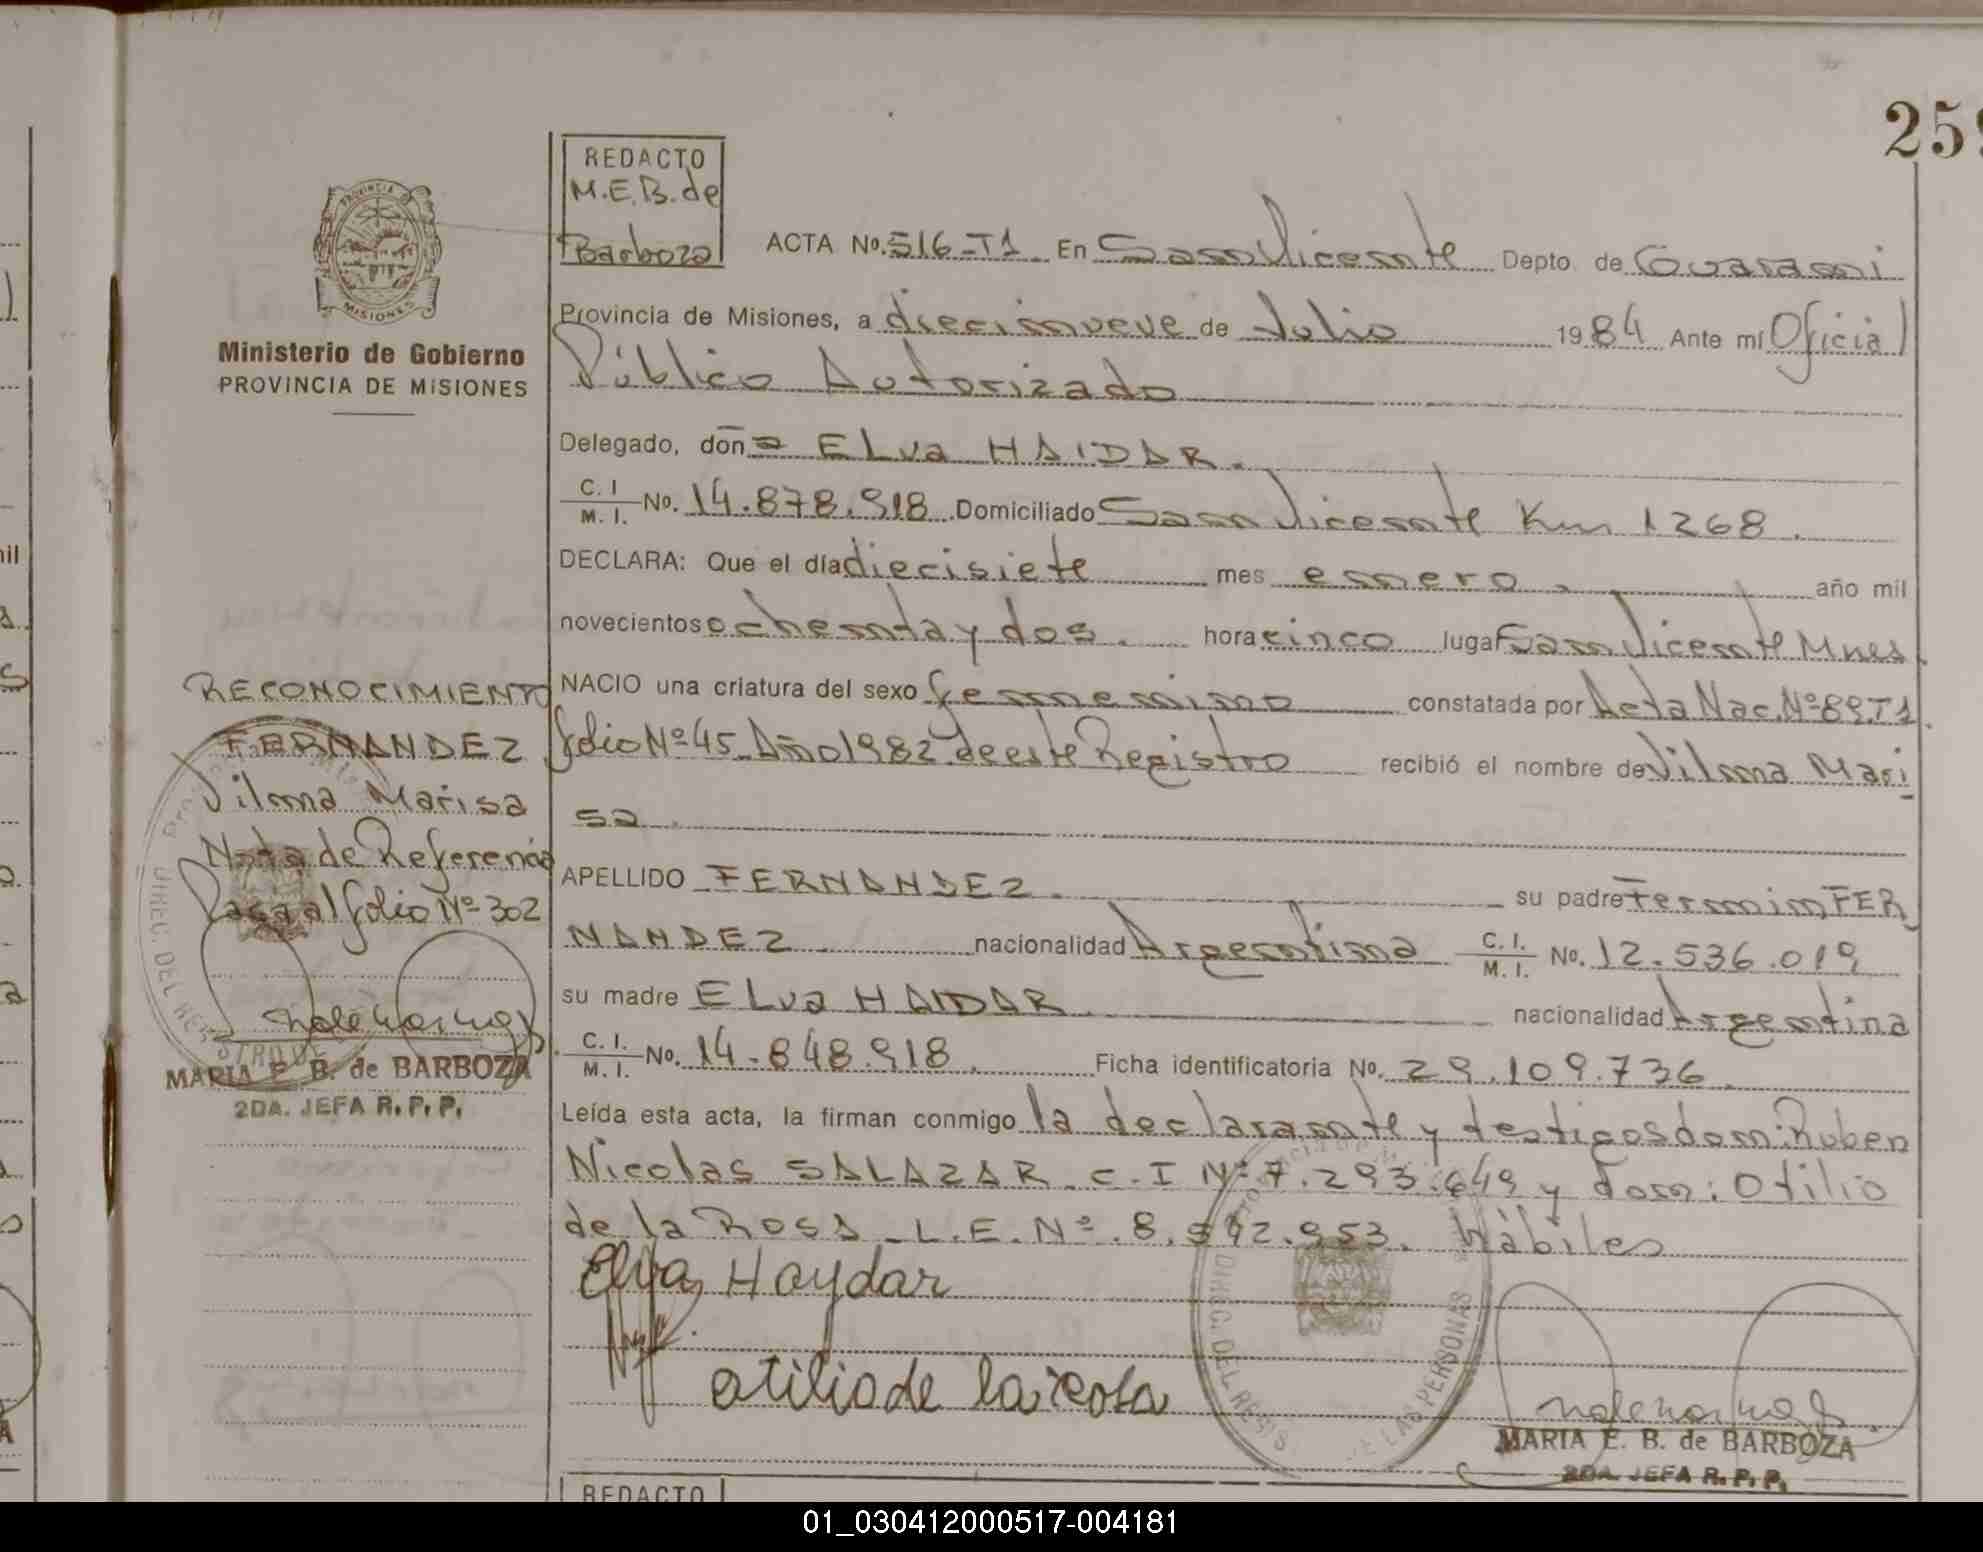 259
REDACTO
M.E.B. de
Barboza
ACTA No. 516-T1 En San Vicente Depto. de Guarani
Provincia de Misiones, a diecinueve de Julio 1984 Ante mí Oficial
Público Autorizado
Delegado, doña ELva HAIDAR.
C. I. / M. I. No. 14.878.918 Domiciliado San Vicente Km 1268.
DECLARA: Que el día diecisiete mes enero. año mil
novecientos ochenta y dos. hora cinco lugar San Vicente Mnes
NACIO una criatura del sexo femenino constatada por Acta Nac. Nº 89.T1.
folio Nº 45 Año 1982 de este Registro recibió el nombre de Vilma Mari
sa.
APELLIDO FERNANDEZ. su padre Fermin FER
NANDEZ nacionalidad Argentina C. I. / M. I. No. 12.536.019
su madre ELva HAIDAR nacionalidad Argentina
C. I. / M. I. No. 14.848.918. Ficha identificatoria No. 29.109.736.
Leída esta acta, la firman conmigo la declarante y testigos don: Ruben
Nicolas SALAZAR C.I Nº 7.293.649 y don: Otilio
de la ROSA L.E. Nº. 8.592.953. hábiles
Elva Haydar
otilio de la rosa
MARIA E. B. de BARBOZA
2DA. JEFA R. P. P.
PROVINCIA DE
MISIONES
Ministerio de Gobierno
PROVINCIA DE MISIONES
RECONOCIMIENTO
FERNANDEZ
Vilma Marisa
Nota de Referencia
Pasa al folio Nº 302
MARIA E. B. de BARBOZA
2DA. JEFA R. P. P.
DIREC. DEL REGISTRO DE
DIREC. DEL REGIS. DE LAS PERSONAS
REDACTO
01_030412000517-004181